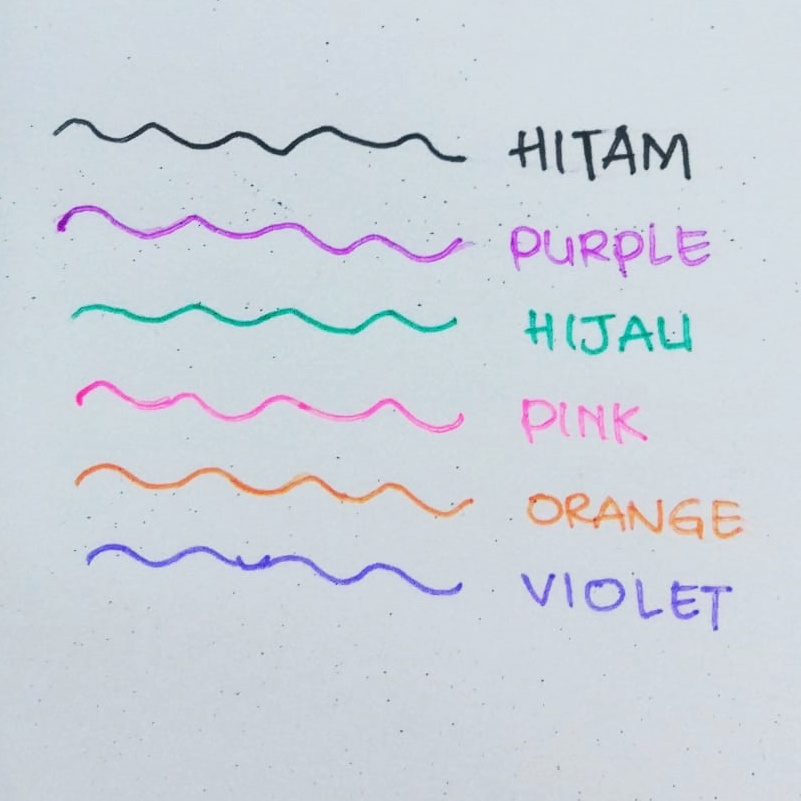 HITAM
PURPLE
HIJAU
PINK
ORANGE
VIOLET